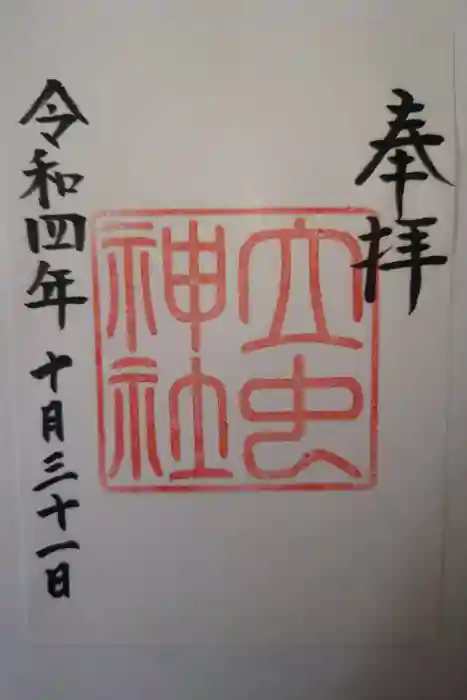 奉拝
立虫
神社
令和四年 十月三十一日